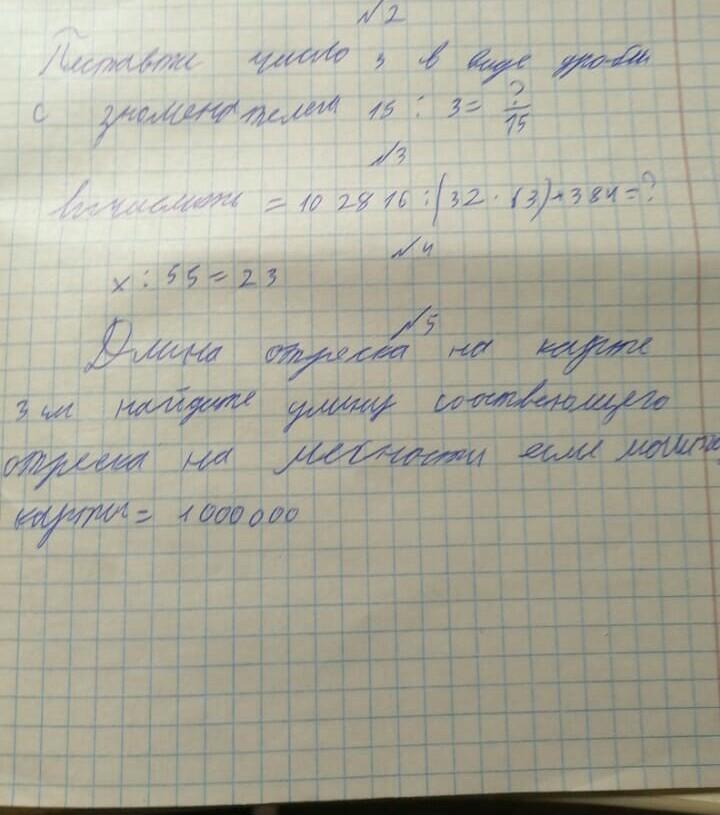 №2
Поставти число 3 в виде дроби
с знаменателем 15 : 3 = ?/15
№3
Вычислить = 102816 : (32 · 63) + 384 = ?
№4
x : 55 = 23
№5
Длина отреска на карте
3 см найдите длину соотвеющего
отреска на месности если машта
карты = 1000000